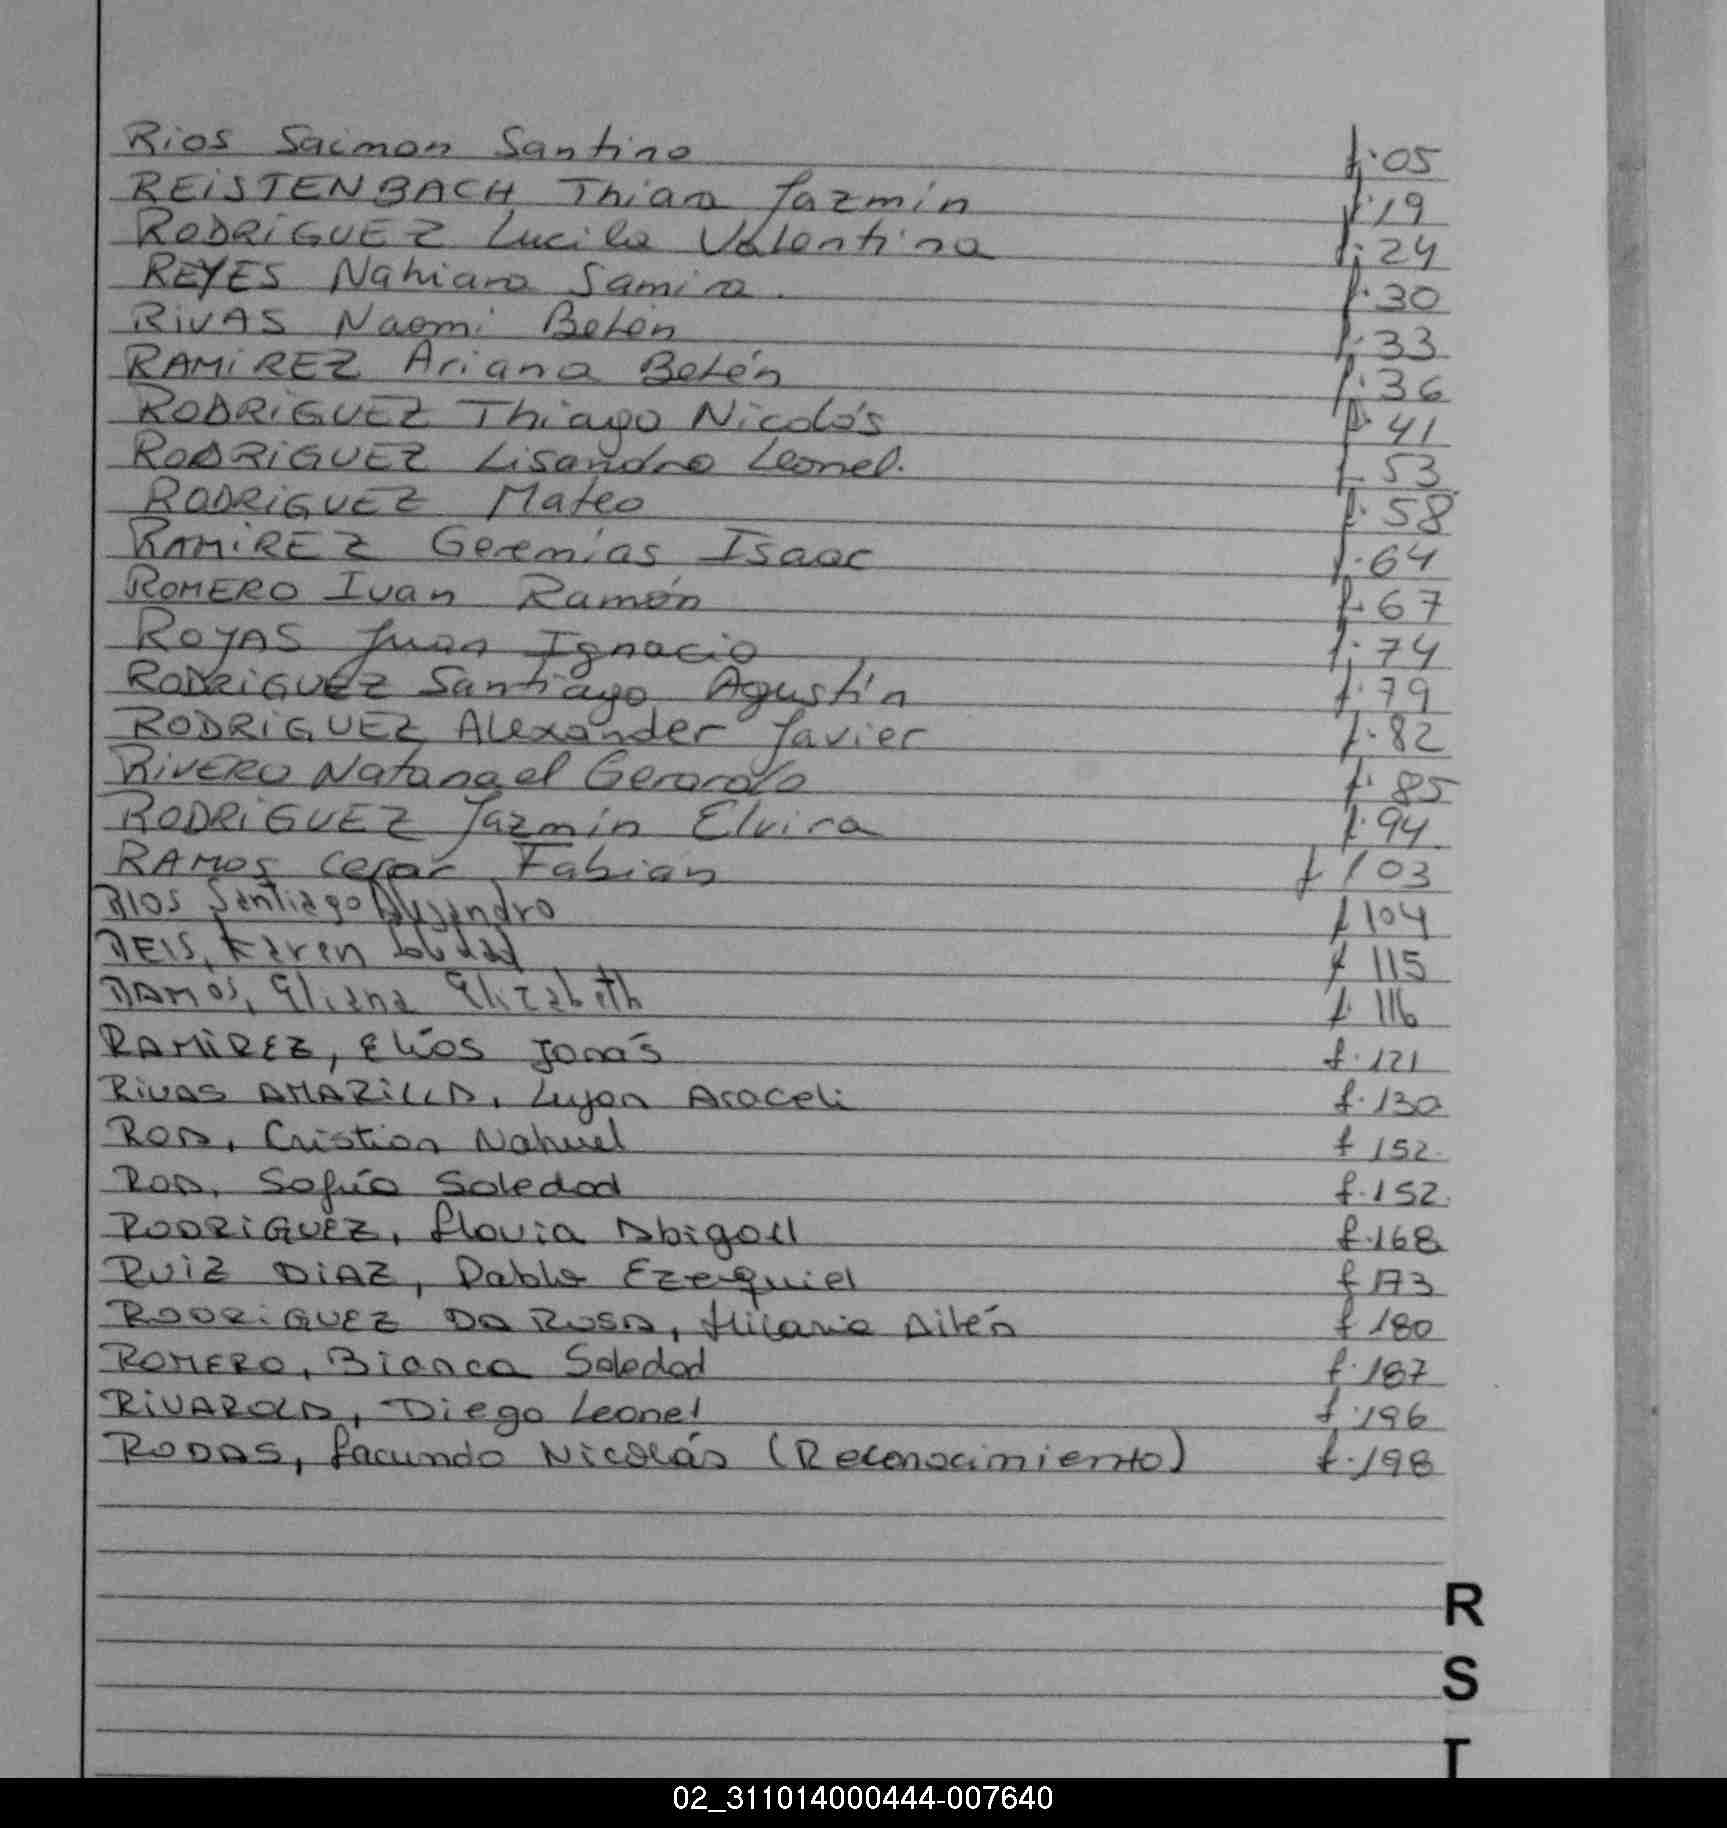 Rios Saimon Santino f. 05
REISTENBACH Thiara Jazmín f. 19
RODRIGUEZ Lucila Valentina f. 24
REYES Nahiara Samira. f. 30
RIVAS Naomi Belén f. 33
RAMIREZ Ariana Belén f. 36
RODRIGUEZ Thiago Nicolás f. 41
RODRIGUEZ Lisandro Leonel. f. 53
RODRIGUEZ Mateo f. 58
RAMIREZ Geremías Isaac f. 64
ROMERO Ivan Ramón f. 67
ROJAS Juan Ignacio f. 74
RODRIGUEZ Santiago Agustín f. 79
RODRIGUEZ Alexander Javier f. 82
RIVERO Natanael Gerardo f. 85
RODRIGUEZ Jazmín Elvira f. 94
RAMOS Cesar Fabián f 103
RIOS Santiago Alejandro f 104
REIS, Karen Soledad f 115
RAMOS, Eliana Elizabeth f. 116
RAMIREZ, Elías Jonás f. 121
RIVAS AMARILLA, Lujan Araceli f. 130
ROA, Cristian Nahuel f 152
ROA, Sofía Soledad f. 152
RODRIGUEZ, Flavia Abigail f. 168
RUIZ DIAZ, Pablo Ezequiel f 173
RODRIGUEZ DA ROSA, Hilaria Ailén f 180
ROMERO, Bianca Soledad f. 187
RIVAROLA, Diego Leonel f. 196
RODAS, Facundo Nicolás (Reconocimiento) f. 198
R
S
T
02_311014000444-007640